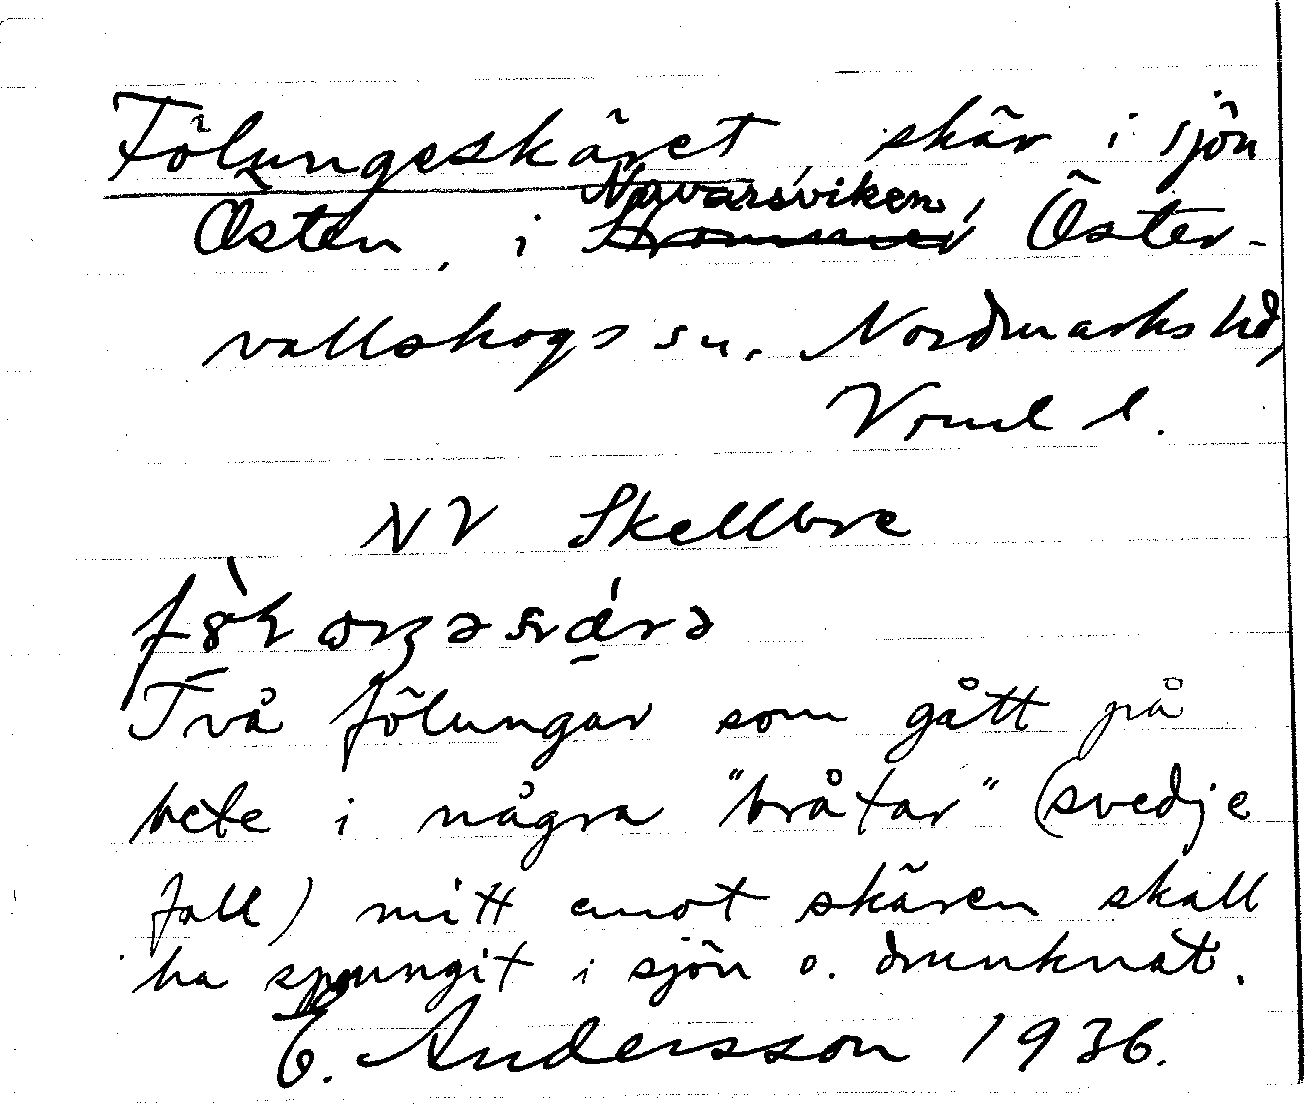 Fölungeskäret, skär i sjön
Östen, i Navarsviken, Öster-
vallskogs sn. Nordmarks hd,
Vrml l.
NV Skellbre
Två fölungar som gått på
bete i några "bråtar" (svedje
fall) mitt emot skären skall
ha sprungit i sjön o. drunknat.
E. Andersson 1936.